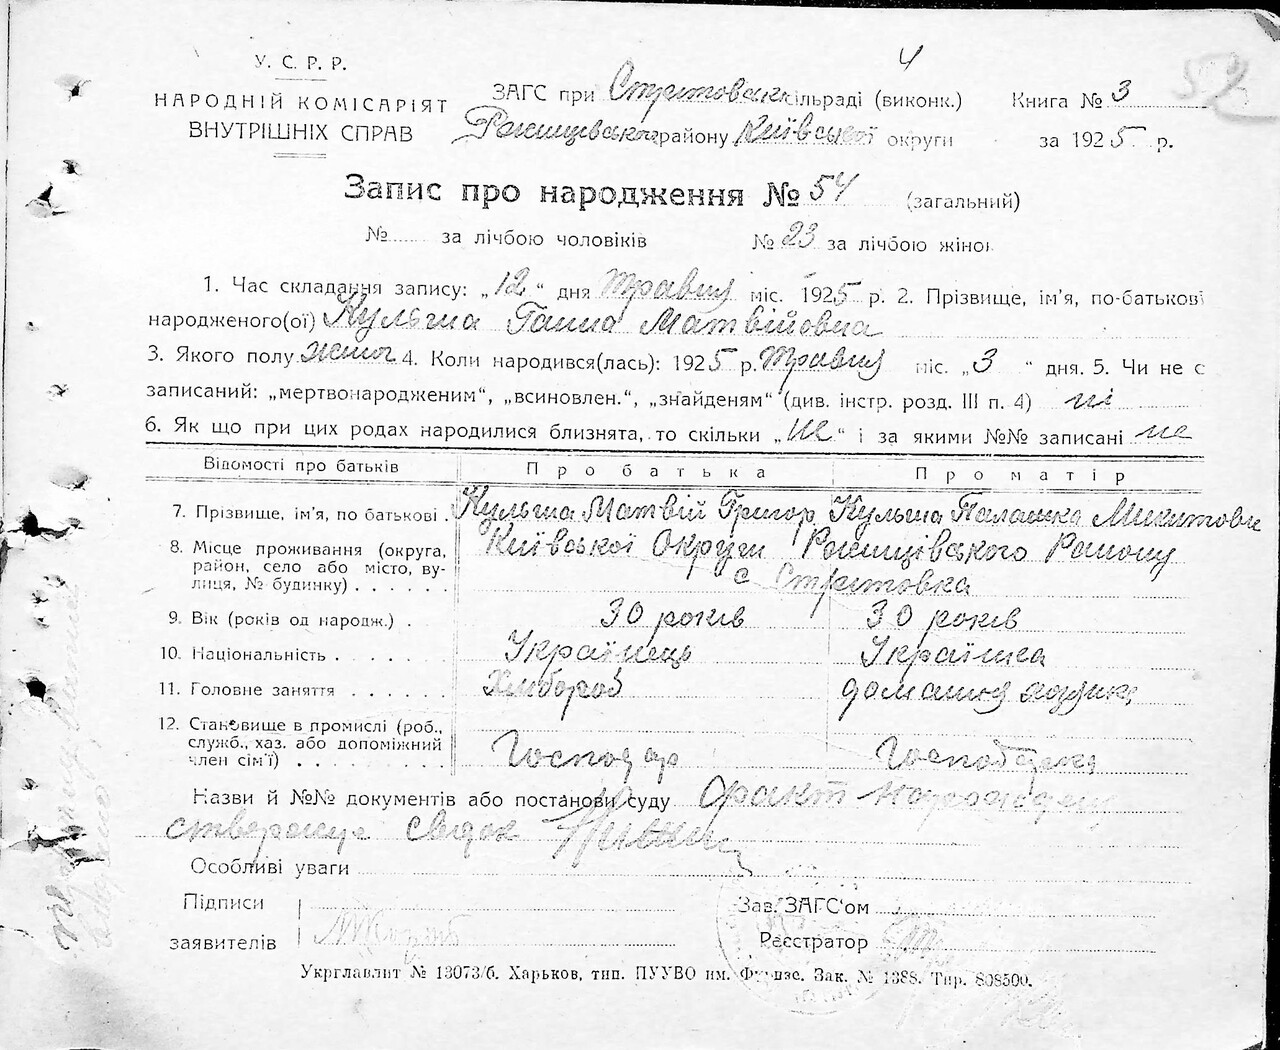 4
52
У. С. Р. Р.
НАРОДНІЙ КОМІСАРІЯТ
ВНУТРІШНІХ СПРАВ
ЗАГС при Стритовськ сільраді (виконк.)
району Київської округи
Книга № 3
за 1925 р.
Запис про народження № 54 (загальний)
№ за лічбою чоловіків № 23 за лічбою жінок
1. Час складання запису: „12“ дня Травня міс. 1925 р. 2. Прізвище, ім’я, по-батькові
народженого(ої) Кульша Ганна Матвійовна
3. Якого полу жіноч 4. Коли народився(лась): 1925 р. Травня міс. „3“ дня. 5. Чи не є
записаний: „мертвонародженим“, „всиновлен.“, „знайденям“ (див. інстр. розд. III п. 4) ні
6. Як що при цих родах народилися близнята, то скільки „не“ і за якими №№ записані не
Відомості про батьків Про батька Про матір
7. Прізвище, ім’я, по батькові . Кульша Матвій Григор Кульша Палашка Микитовн
8. Місце проживання (округа, Київської Округи Району
район, село або місто, ву- с Стритовка
лиця, № будинку) . . . . . .
9. Вік (років од народж.) . 30 років 30 років
10. Національність . . . . . . Українець Українка
11. Головне заняття . . . . . . Хлібороб домашня
12. Становище в промислі (роб.,
служб., хаз. або допоміжний Господар
член сім’ї) . . . . . . . . .
Назви й №№ документів або постанови суду факт народжден
стверджує свідок
Особливі уваги
Підписи Зав. ЗАГС’ом
заявителів Реєстратор
Укрглавлит № 13073/б. Харьков, тип. ПУУВО им. Фрунзе. Зак. № 1388. Тир. 808500.